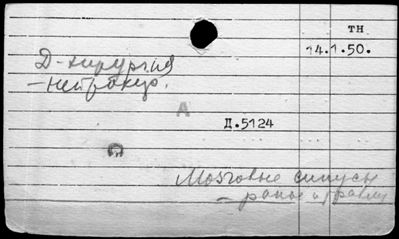 тн
14.1.50.
Д-хирургия
-нейрохир.
А
Д.5124
Мозговые синусы
- раны и травмы